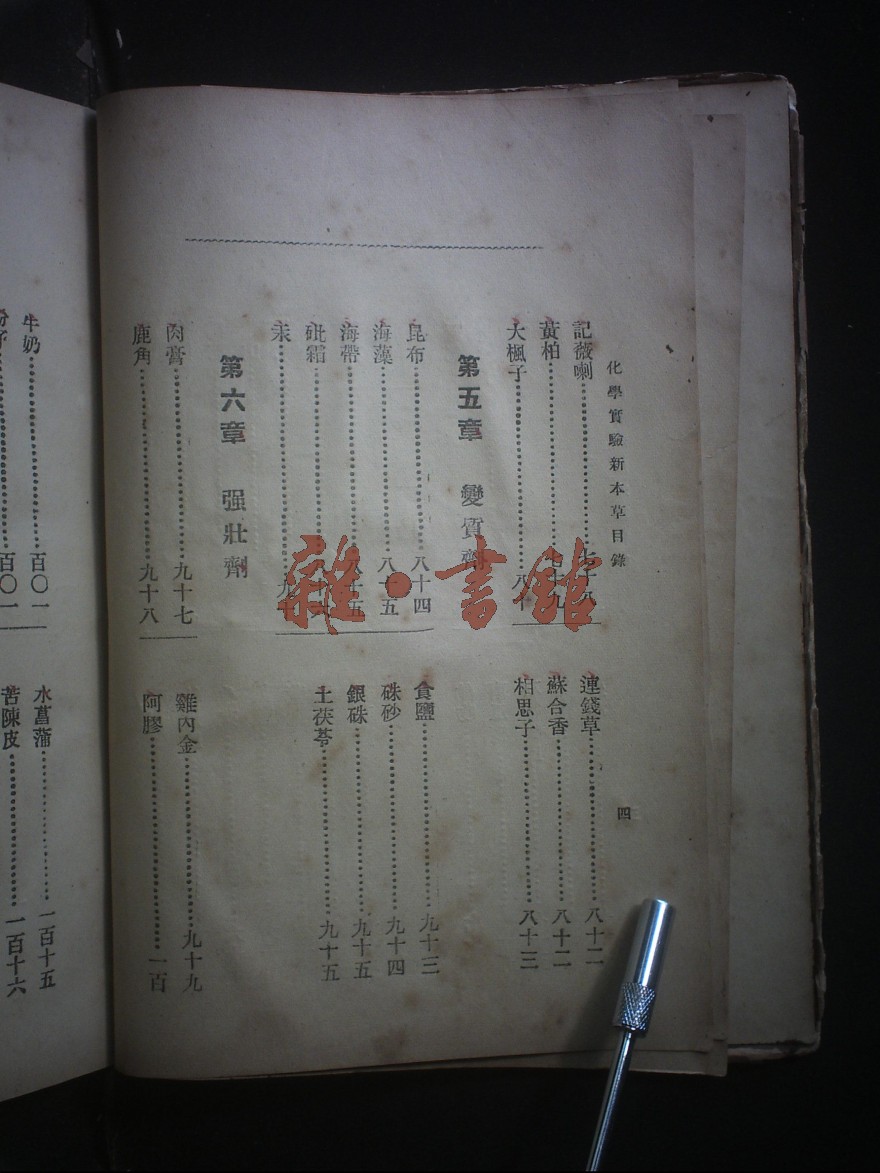 化學實驗新本草目錄
四
記薇喇
黃柏 七十九
大楓子 八十
連錢草 八十二
蘇合香 八十二
相思子 八十三
第五章 變質劑
昆布 八十四
海藻 八十五
海帶 八十五
砒霜
汞 九十
食鹽 九十三
硃砂 九十四
銀硃 九十五
土茯苓 九十五
第六章 强壯劑
肉膏 九十七
鹿角 九十八
雞內金 九十九
阿膠 一百
牛奶 百〇一
百〇一
水菖蒲 一百十五
苦陳皮 一百十六
雜·書館